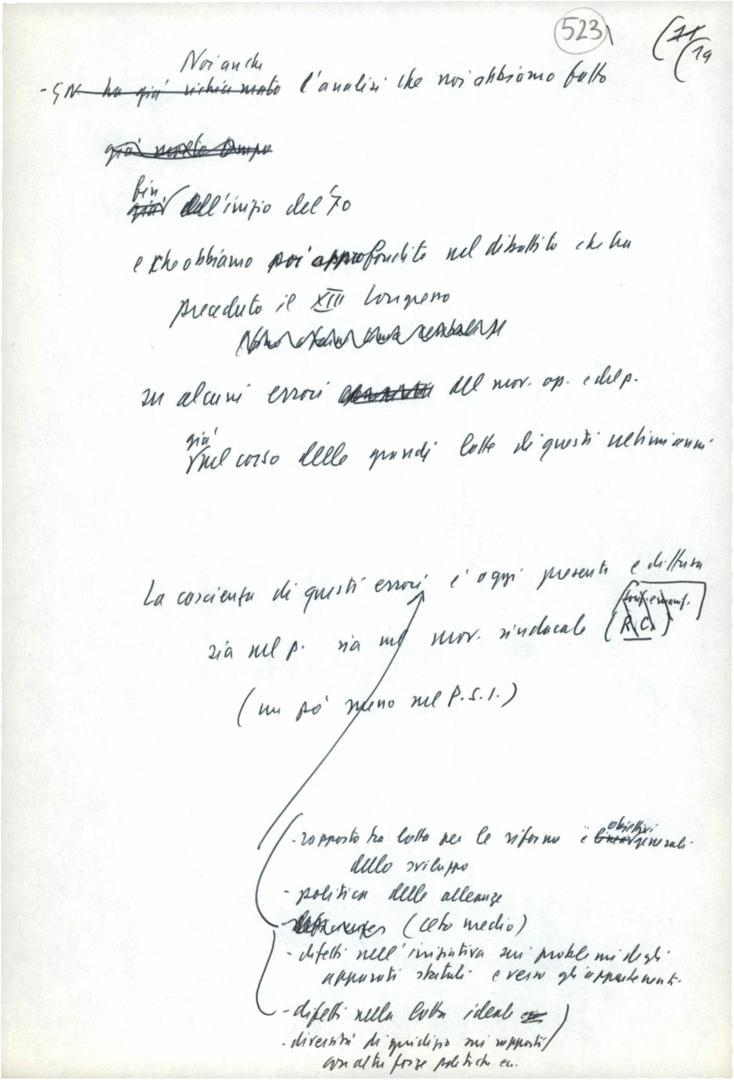 523
19
Noi anche
- GN ha già richiamato l'analisi che noi abbiamo fatto
già molto tempo
fin
già dall'inizio del '70
e che abbiamo poi approfondito nel dibattito che ha
preceduto il XIII Congresso
su alcuni errori del mov. op. e del p.
già
nel corso delle grandi lotte di questi ultimi anni
La coscienza di questi errori è oggi presente e diffusa
sia nel p. sia nel mov. sindacale (R.C.)
(un pò meno nel P.S.I.)
- rapporto tra lotta per le riforme e obiettivi generali
dello sviluppo
- politica delle alleanze
- (ceto medio)
- difetti nell'iniziativa sui problemi degli
apparati statali e verso gli appartenenti
- difetti nella lotta ideale
- diversità di giudizio sui rapporti
con altre forze politiche ecc.